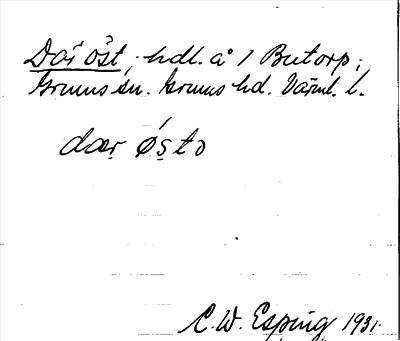 Där öst, hdl. å 1 Butorp;
Grums sn. Grums hd. Värml. l.
dær østo
C. W. Esping 1931.